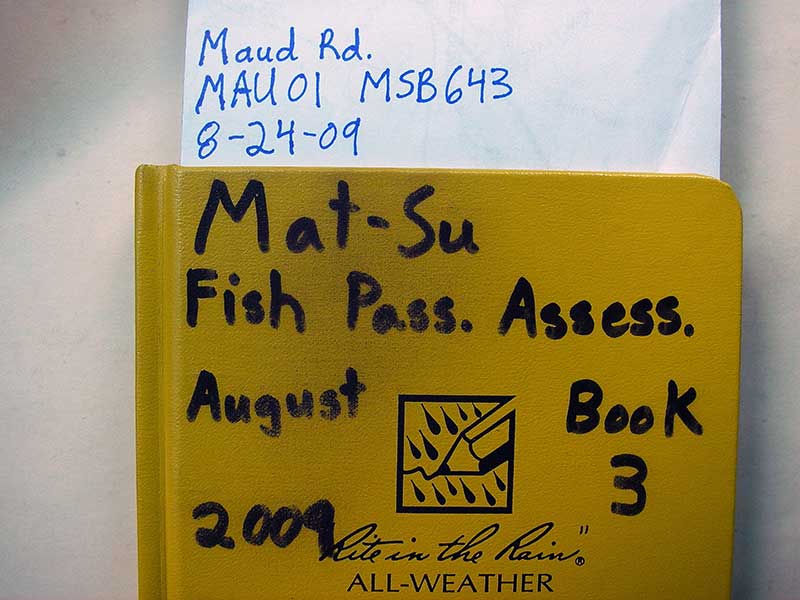 Maud Rd.
MAU01 MSB643
8-24-09
Mat-Su
Fish Pass. Assess.
August Book
2009 3
Rite in the Rain®
ALL-WEATHER